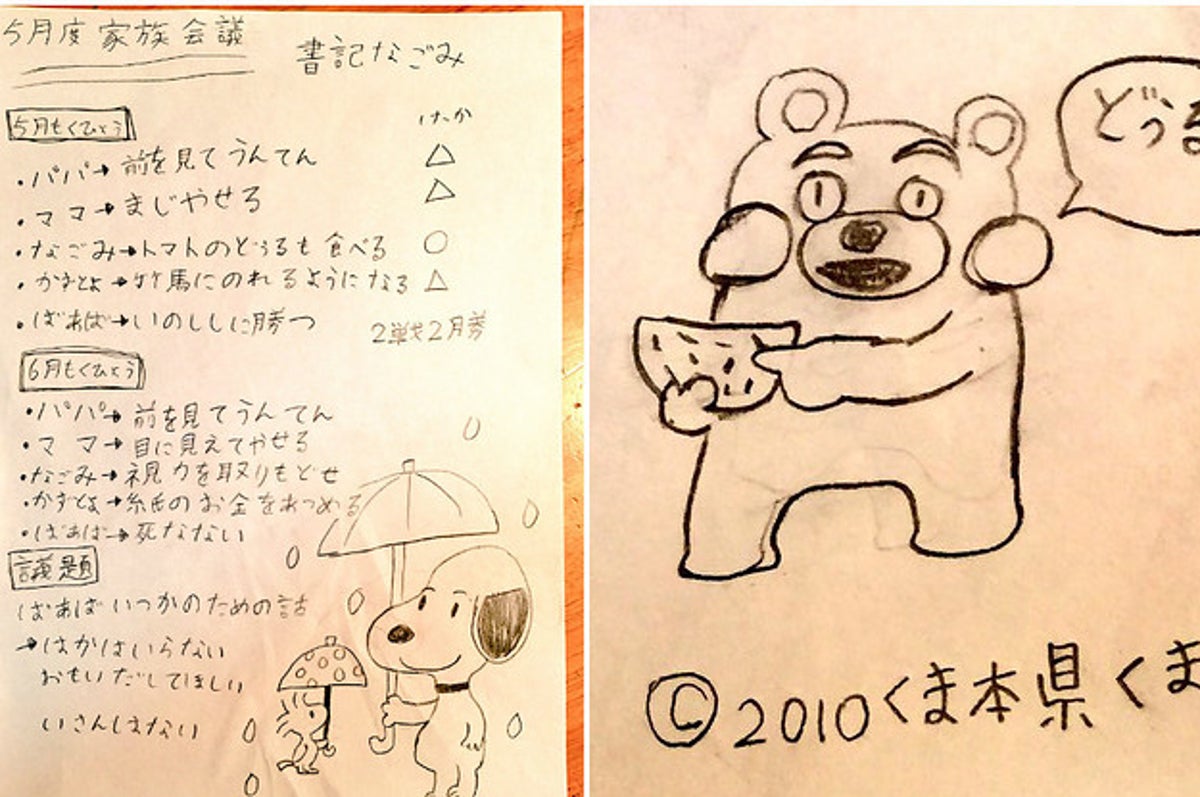 5月度 家族会議
書記なごみ
5月もくひょう
けっか
・パパ→前を見てうんてん △
・ママ→まじやせる △
・なごみ→トマトのどぅるも食べる ○
・かずとよ→竹馬にのれるようになる △
・ばぁば→いのししに勝つ 2戦2月券
6月もくひょう
・パパ→前を見てうんてん
・ママ→目に見えてやせる
・なごみ→視力を取りもどせ
・かずとよ→糸氏のお金をあつめる
・ばぁば→死なない
議題
ばぁばいつかのための話
→はかはいらない
おもいだしてほしい
いさんはない
どぅる
©2010くま本県くま